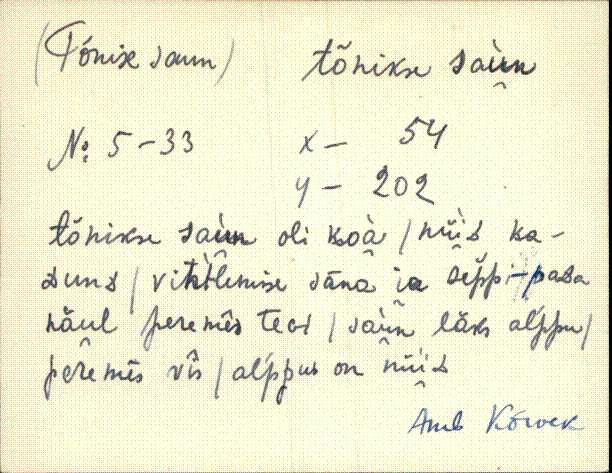 (Tõnise saun) tõnikse saùn
No: 5-33 x - 54
y - 202
tõnikse saùn oli koà / nüìd ka-
dund / sāna ia sèppi-pasa
näul peremēs test / saùn läks alp̀pu /
pēremēs vīs / alp̀pus on nüìd
Amb Kõrvek